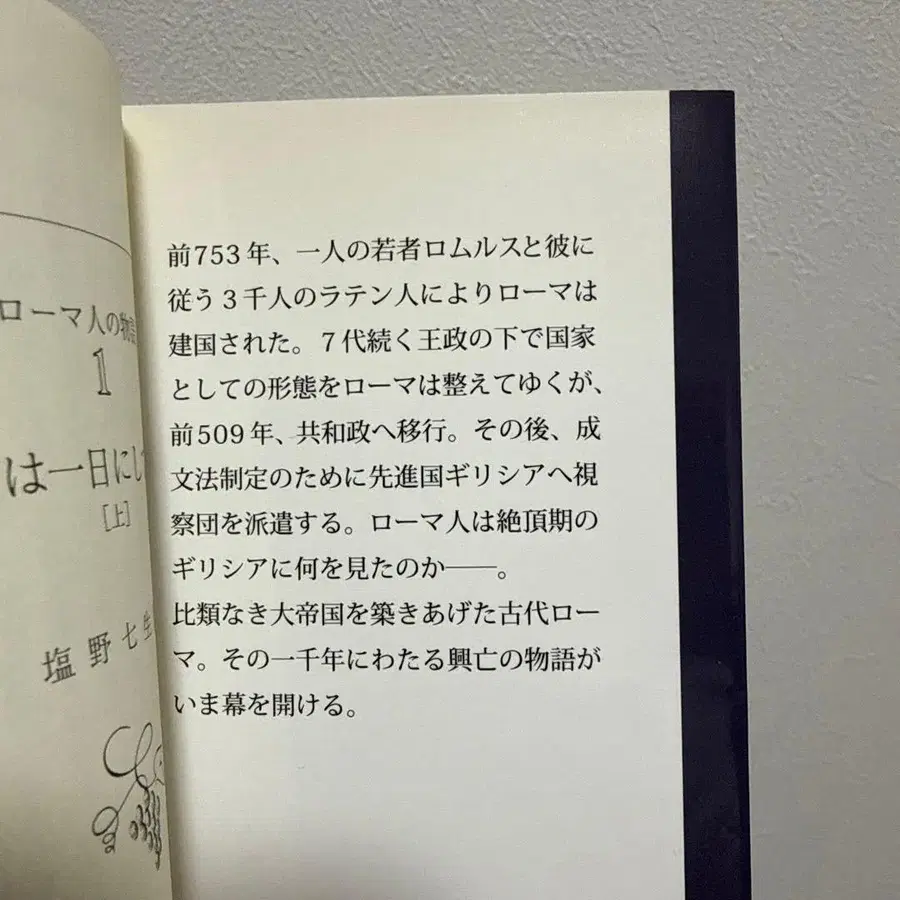 ローマ人の物
1
は一日にし
[上]
塩野七生
前753年、一人の若者ロムルスと彼に
従う3千人のラテン人によりローマは
建国された。7代続く王政の下で国家
としての形態をローマは整えてゆくが、
前509年、共和政へ移行。その後、成
文法制定のために先進国ギリシアへ視
察団を派遣する。ローマ人は絶頂期の
ギリシアに何を見たのか——。
比類なき大帝国を築きあげた古代ロー
マ。その一千年にわたる興亡の物語が
いま幕を開ける。